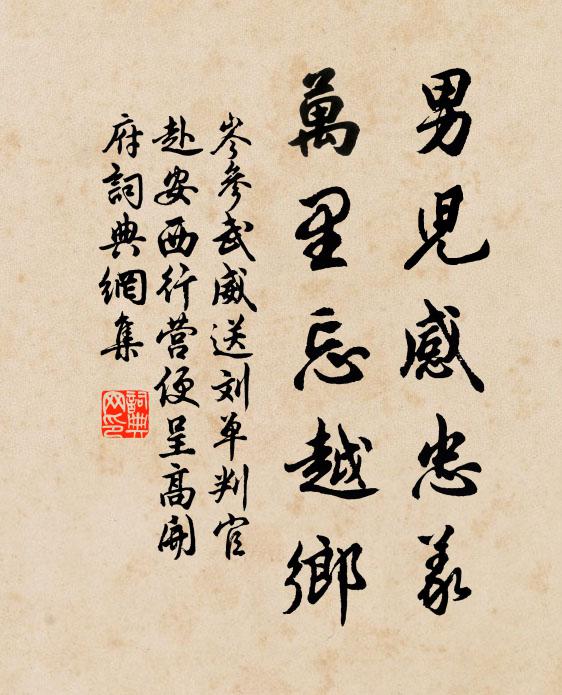 男児感忠義
萬里忘越鄉
岑參武威送刘单判官
赴安西行营便呈高開
府詞典網集
詞典
网印